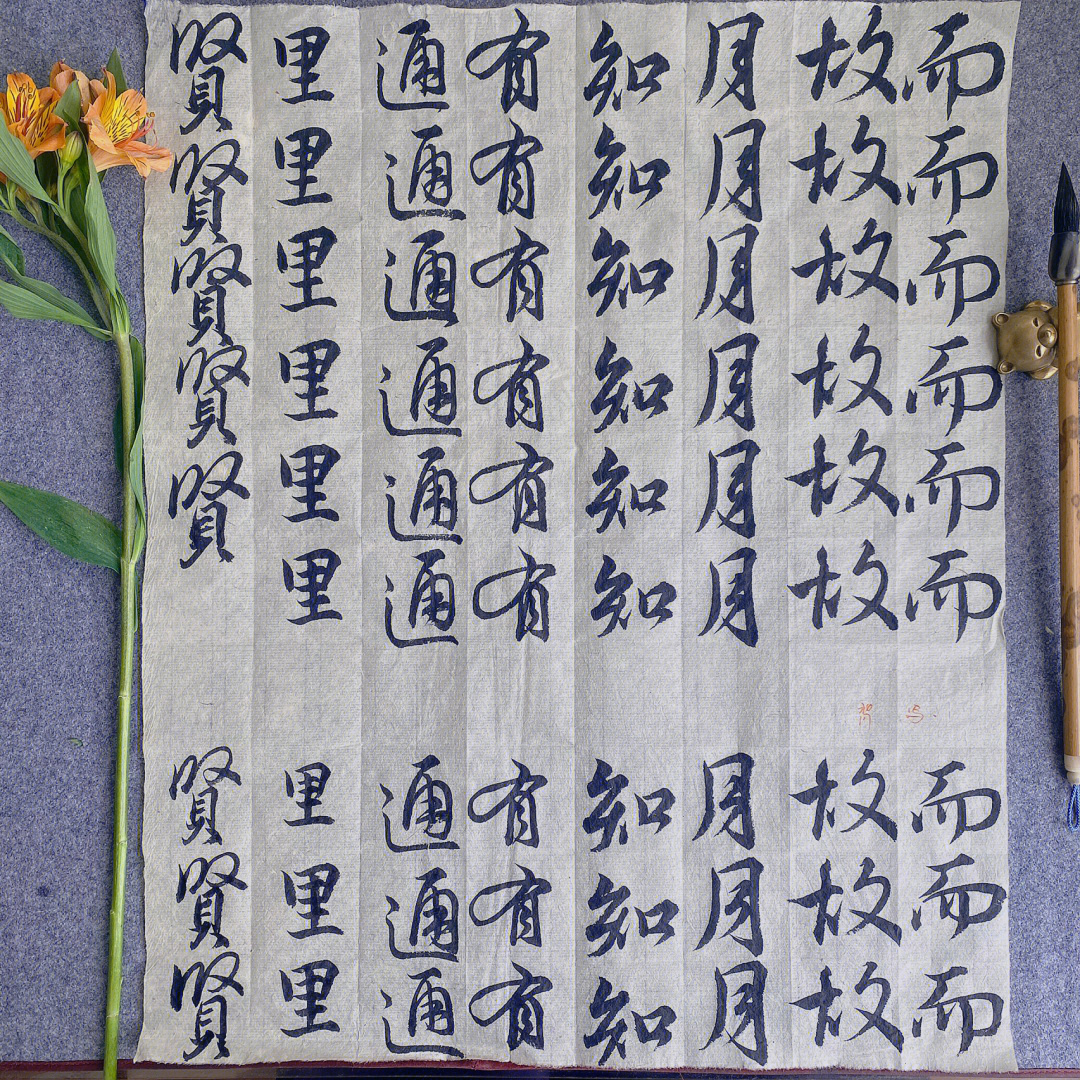 而而而而而而
故故故故故故
月月月月月月
知知知知知知
有有有有有有
通通通通通通
里里里里里里
賢賢賢賢賢
而而而
故故故
月月月
知知知
有有有
通通通
里里里
賢賢賢